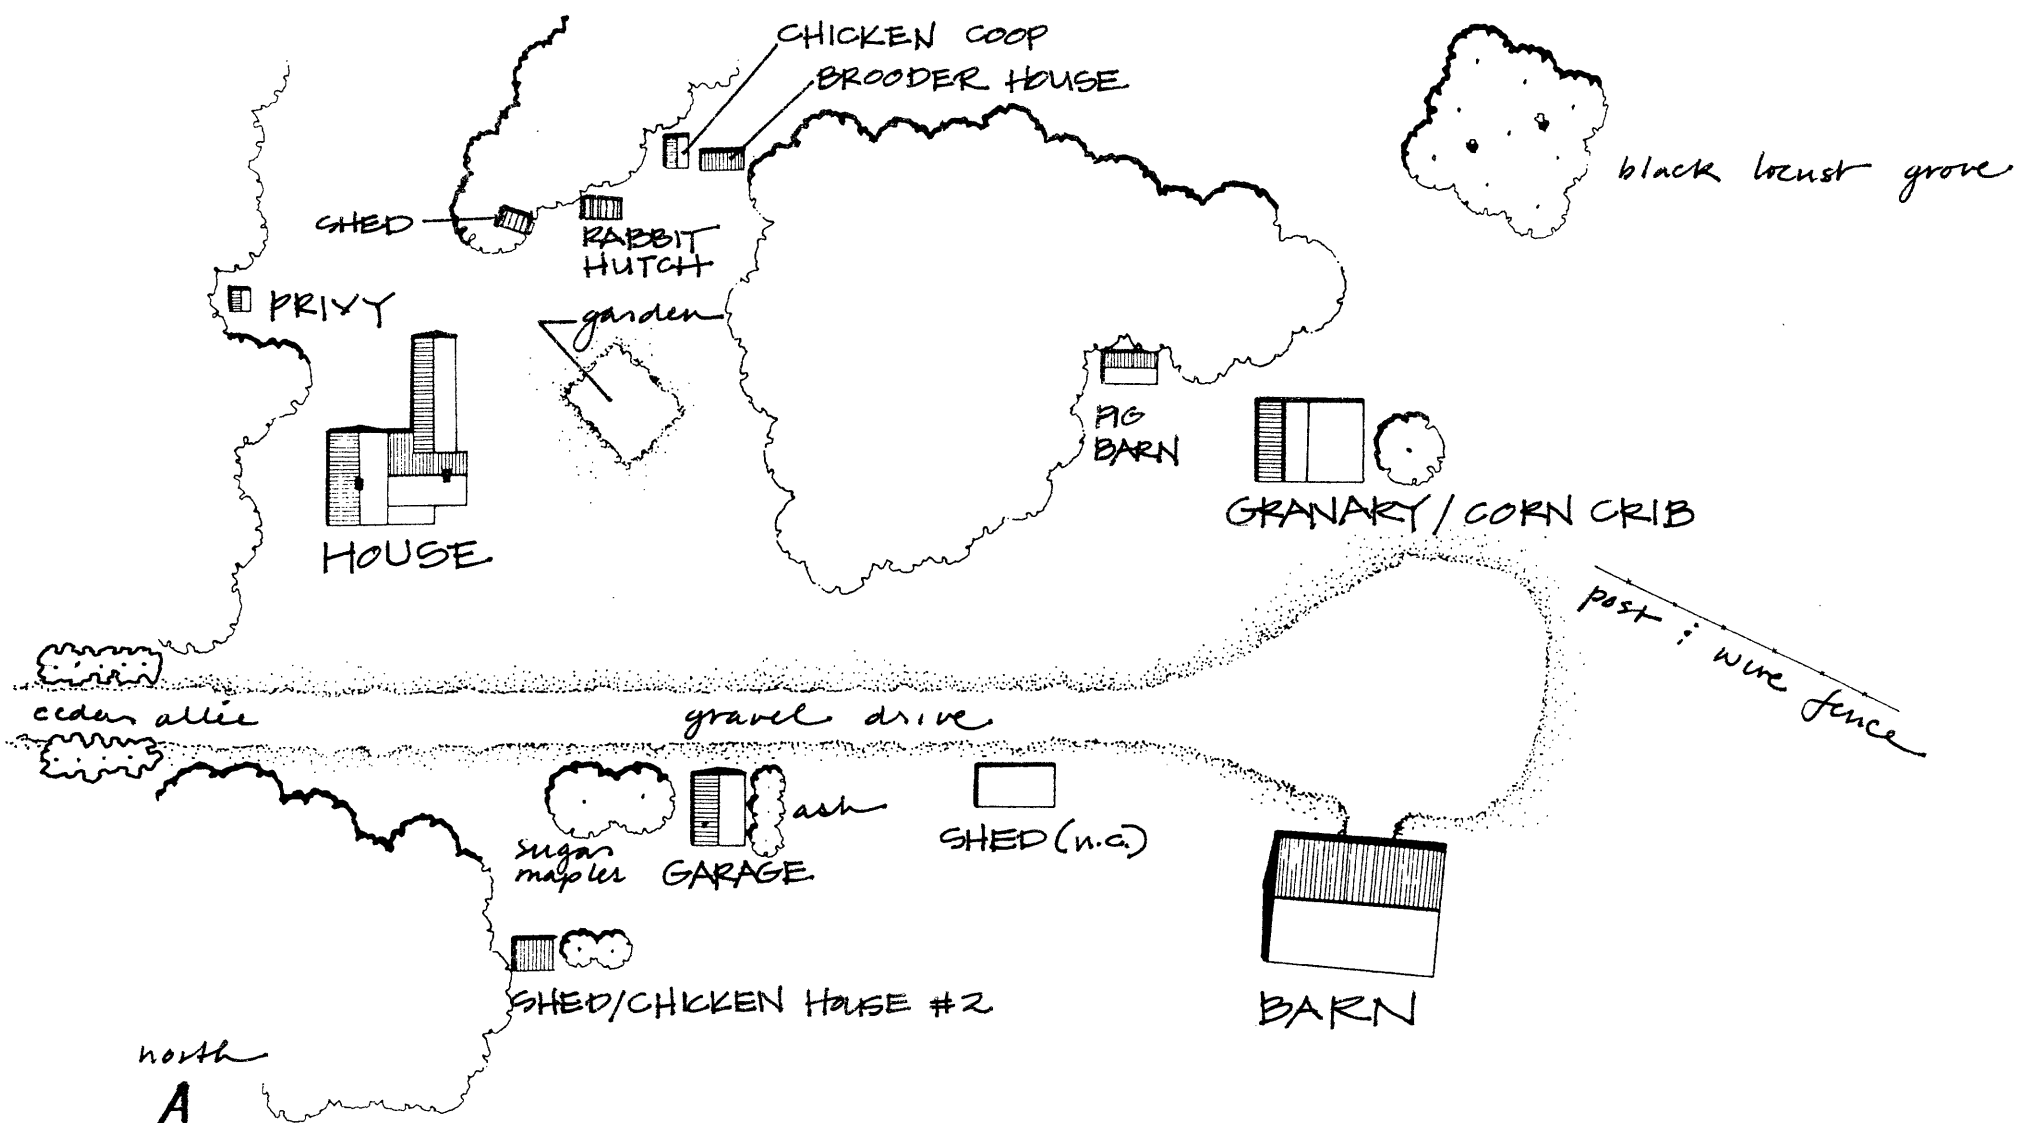 CHICKEN COOP
BROODER HOUSE
black locust grove
SHED
RABBIT
HUTCH
PRIVY
garden
PIG
BARN
GRANARY / CORN CRIB
HOUSE
post & wire fence
cedar allée
gravel drive
ash
SHED (n.c.)
sugar
maples
GARAGE
SHED/CHICKEN HOUSE #2
BARN
north